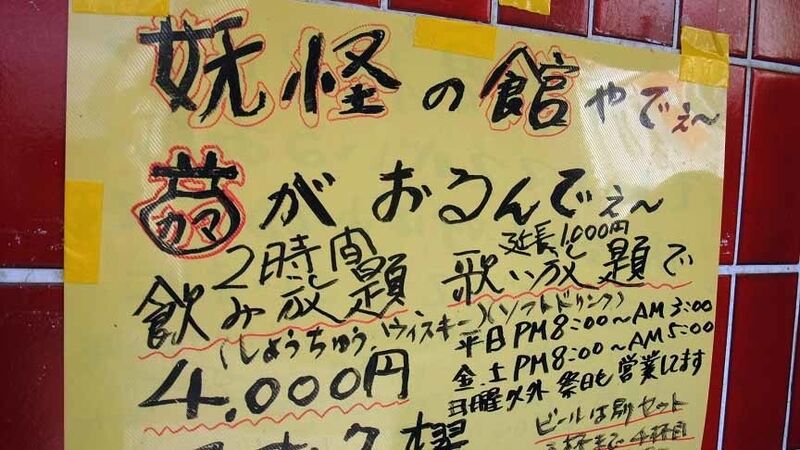 妖怪の館やでぇ〜
カマがおるんでぇ〜
2時間 延長1,000円
飲み放題 歌い放題で
(しょうちゅう、ウィスキー)(ソフトドリンク)
4,000円
平日PM8:00〜AM3:00
金.土PM8:00〜AM5:00
日曜以外祭日も営業してます
ビールは別セット